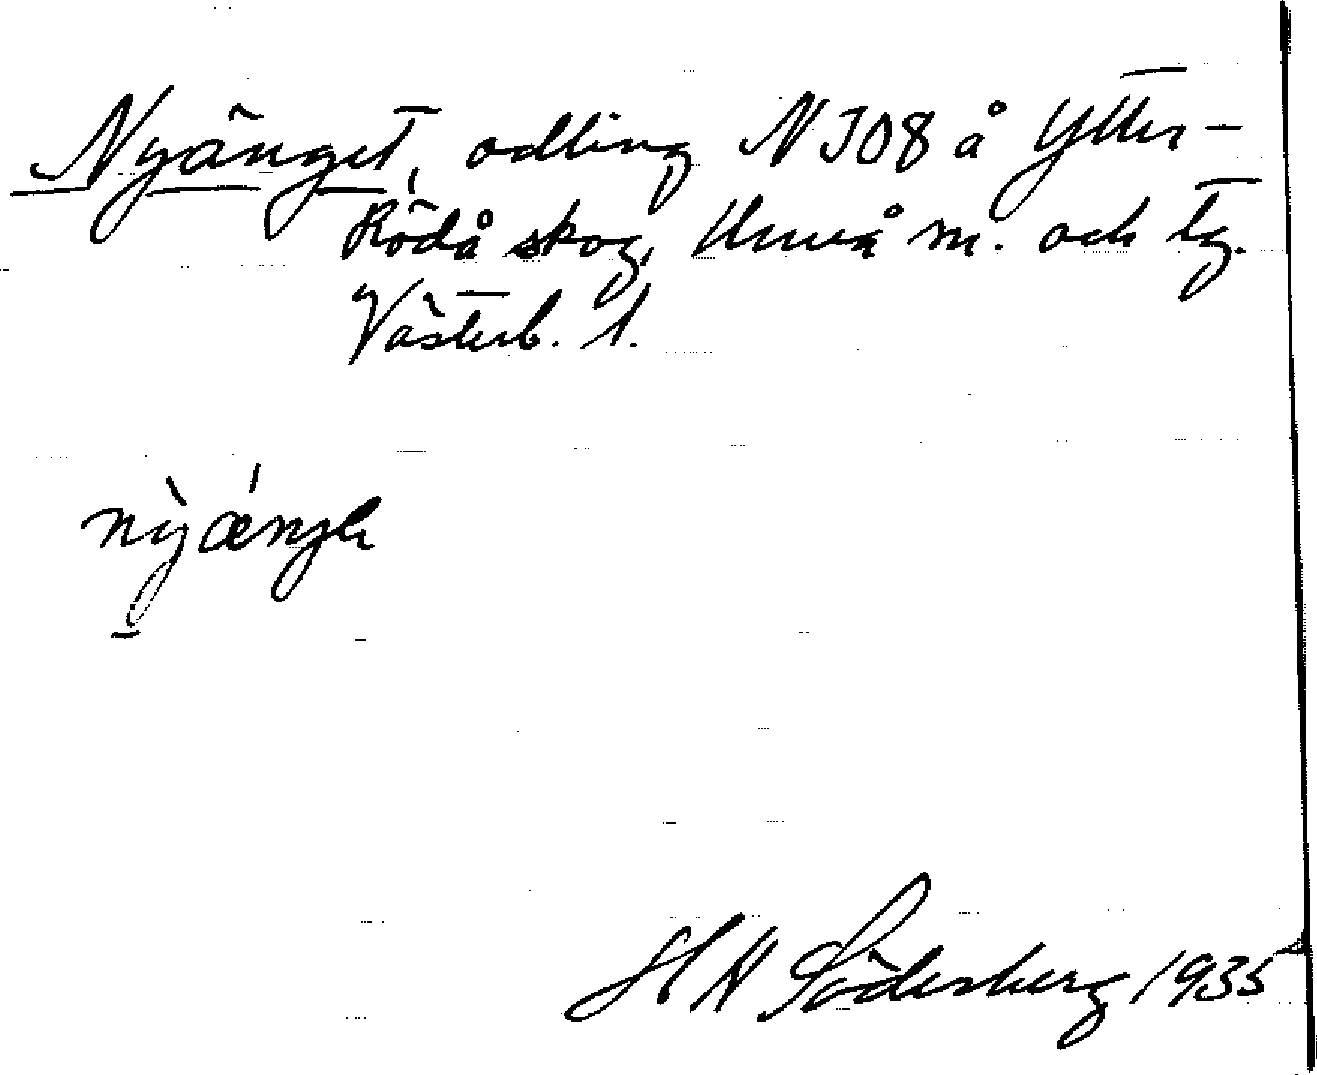 Nyänget, odling NJO8 å Ytter-
Rödå skog, Umeå m. och tg.
Västerb. l.
H N Söderberg 1935